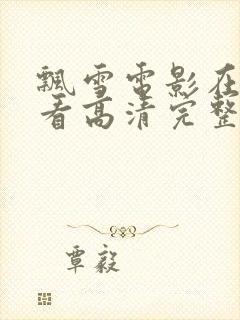 飘雪电影在
看高清完整
覃毅